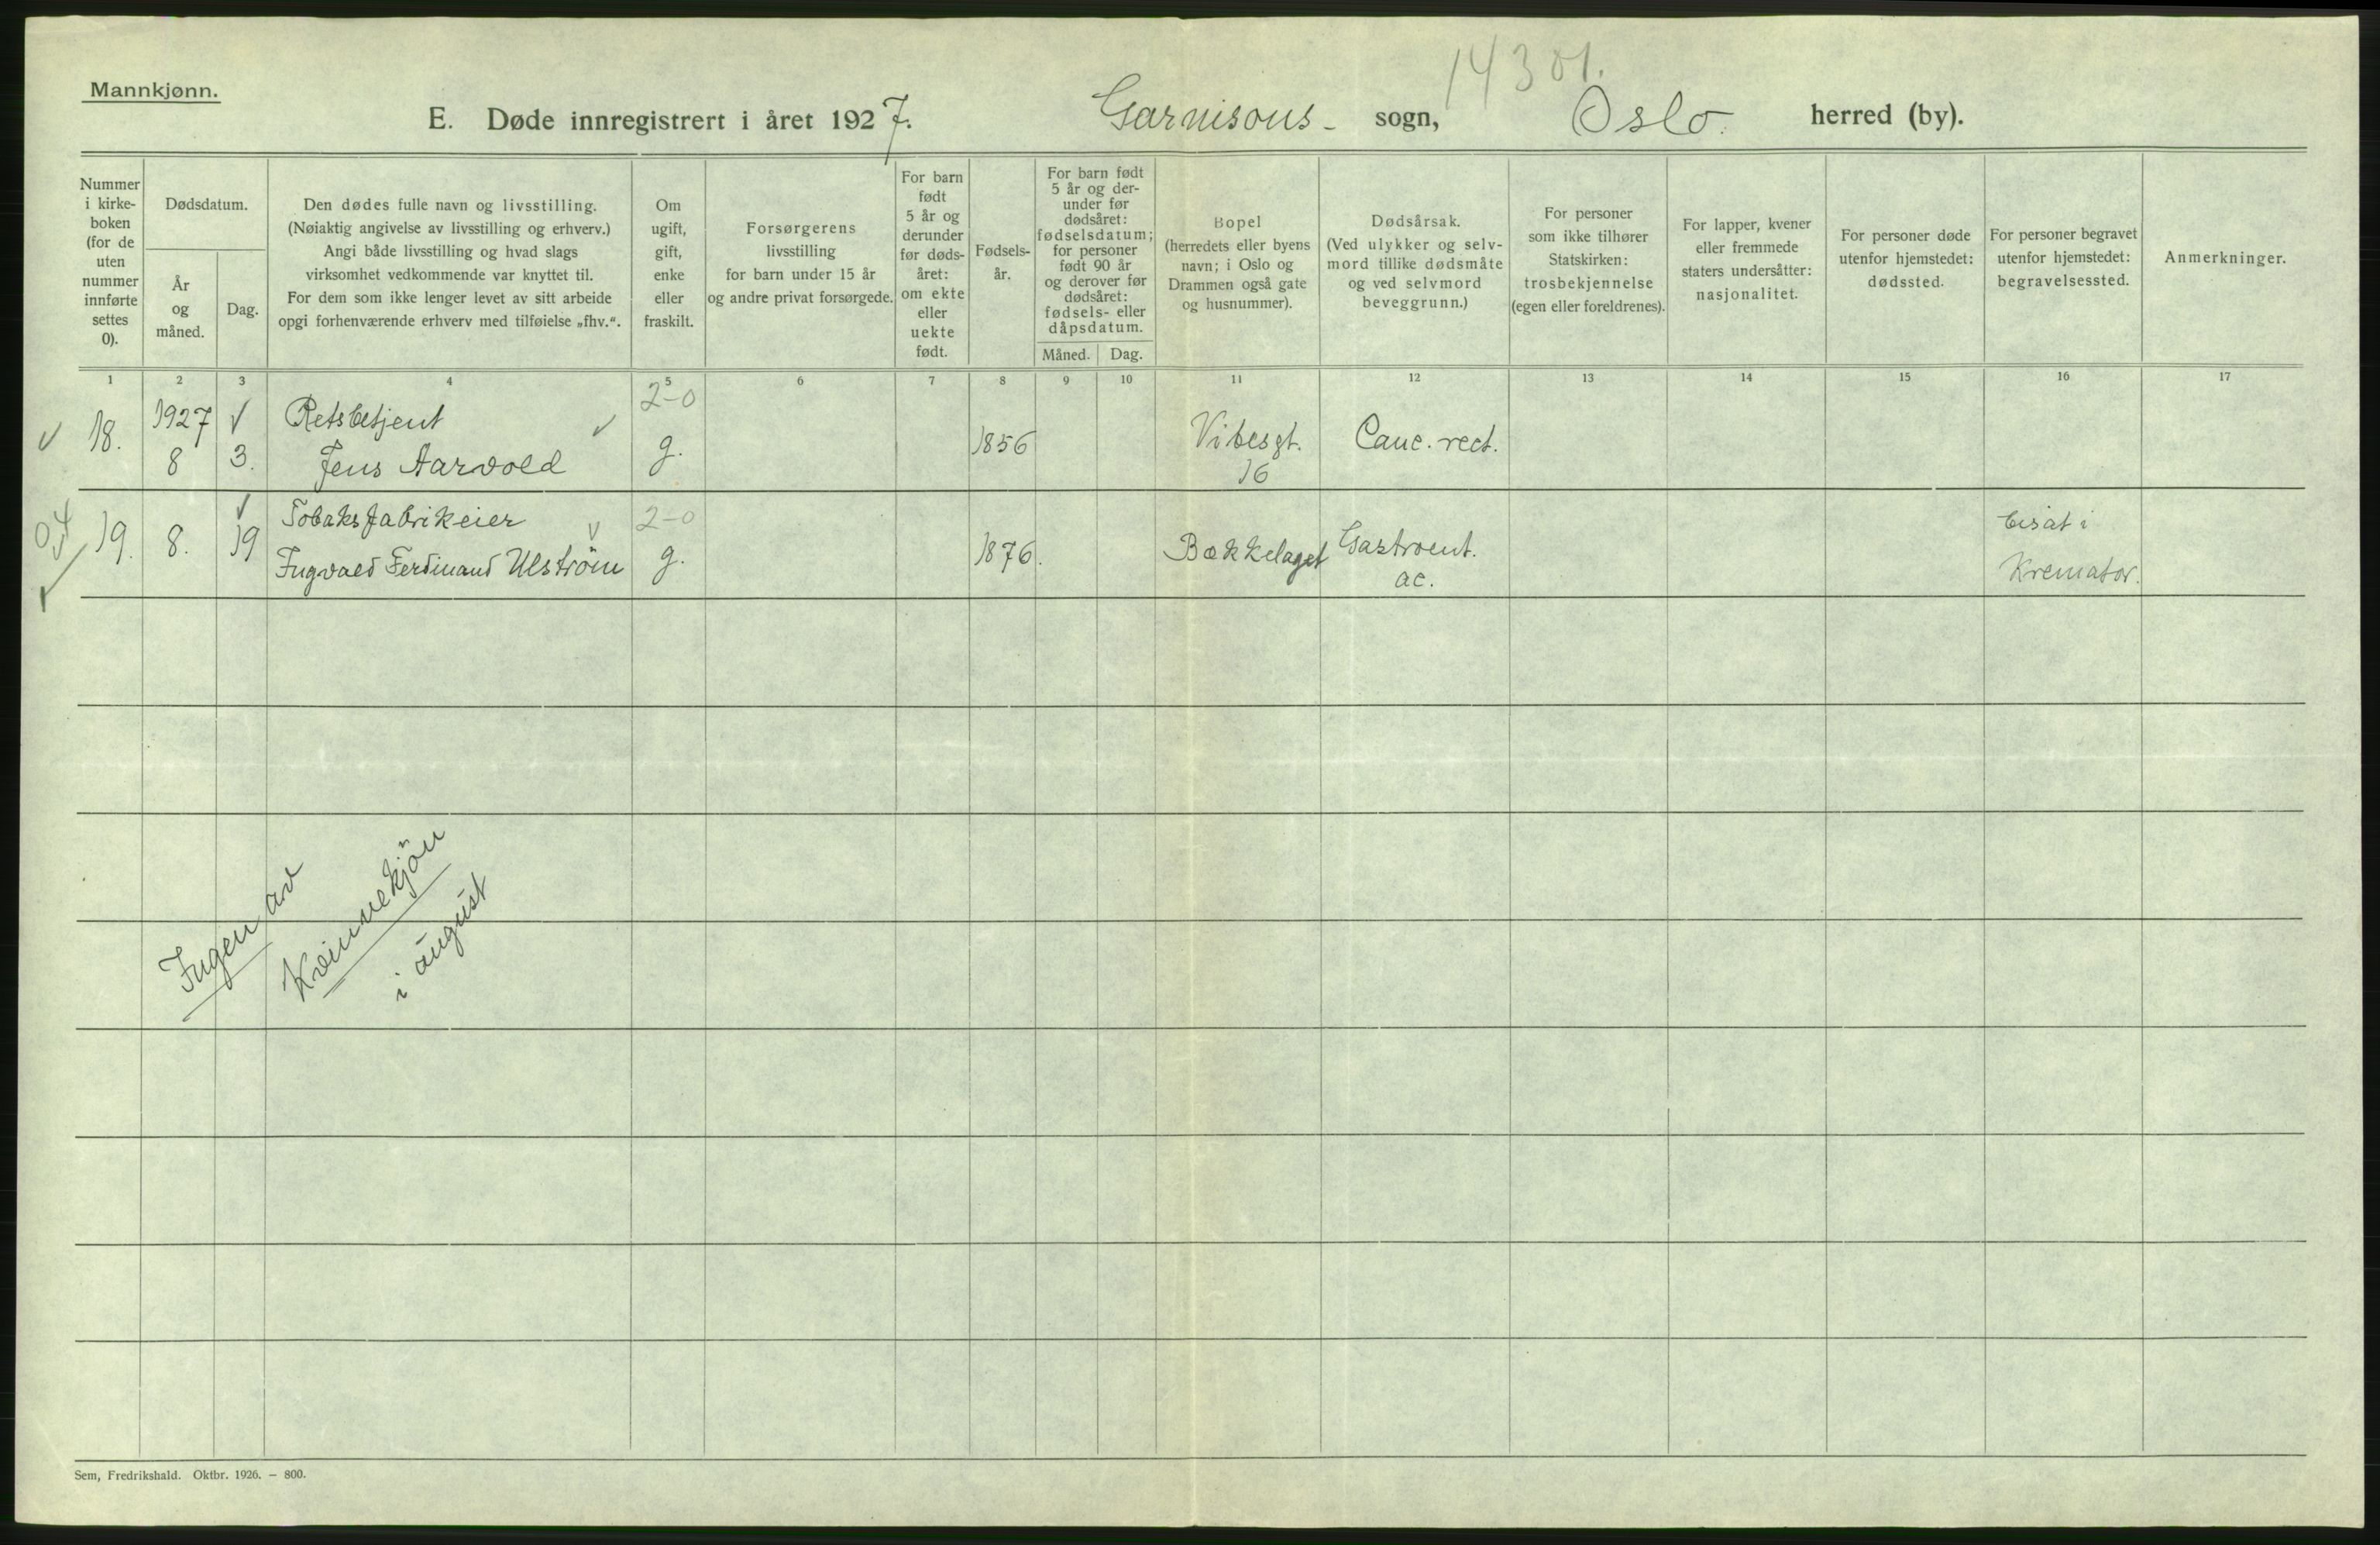 14301.
Mannkjønn.
E. Døde innregistrert i året 1927. Garnisons- sogn, Oslo. herred (by).
Nummer
i kirke-
boken
(for de
uten
nummer
innførte
settes
0).
Dødsdatum.
År
og
måned.
Dag.
Den dødes fulle navn og livsstilling.
(Nøiaktig angivelse av livsstilling og erhverv.)
Angi både livsstilling og hvad slags
virksomhet vedkommende var knyttet til.
For dem som ikke lenger levet av sitt arbeide
opgi forhenværende erhverv med tilføielse „fhv.“.
Om
ugift,
gift,
enke
eller
fraskilt.
Forsørgerens
livsstilling
for barn under 15 år
og andre privat forsørgede.
For barn
født
5 år og
derunder
før døds-
året:
om ekte
eller
uekte
født.
Fødsels-
år.
For barn født
5 år og der-
under før
dødsåret:
fødselsdatum;
for personer
født 90 år
og derover før
dødsåret:
fødsels- eller
dåpsdatum.
Måned. Dag.
Bopel
(herredets eller byens
navn; i Oslo og
Drammen også gate
og husnummer).
Dødsårsak.
(Ved ulykker og selv-
mord tillike dødsmåte
og ved selvmord
beveggrunn.)
For personer
som ikke tilhører
Statskirken:
trosbekjennelse
(egen eller foreldrenes).
For lapper, kvener
eller fremmede
staters undersåtter:
nasjonalitet.
For personer døde
utenfor hjemstedet:
dødssted.
For personer begravet
utenfor hjemstedet:
begravelsessted.
Anmerkninger.
1 2 3 4 5 6 7 8 9 10 11 12 13 14 15 16 17
1927 Retsbetjent 2-0
18. 8 3. Jens Aarvold g. 1856 Vibesgt. Canc. rect.
16
Tobaksfabrikeier 2-0 bisat i
19. 8. 19 Ingvald Ferdinand Ulström g. 1876. Bækkelaget Gastroent. Kremator.
ac.
Ingen av
Kvinnekjön
i august
Sem, Fredrikshald. Oktbr. 1926. – 800.